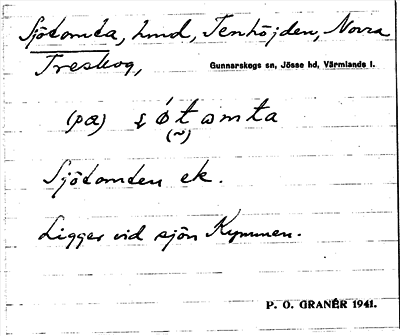 Sjötomta, hmd, Tenhöjden, Norra
Treskog,
Gunnarskogs sn, Jösse hd, Värmlands l.
(pa)
(~)
Sjötomten ek.
Ligger vid sjön Kymmen.
P. O. GRANÉR 1941.